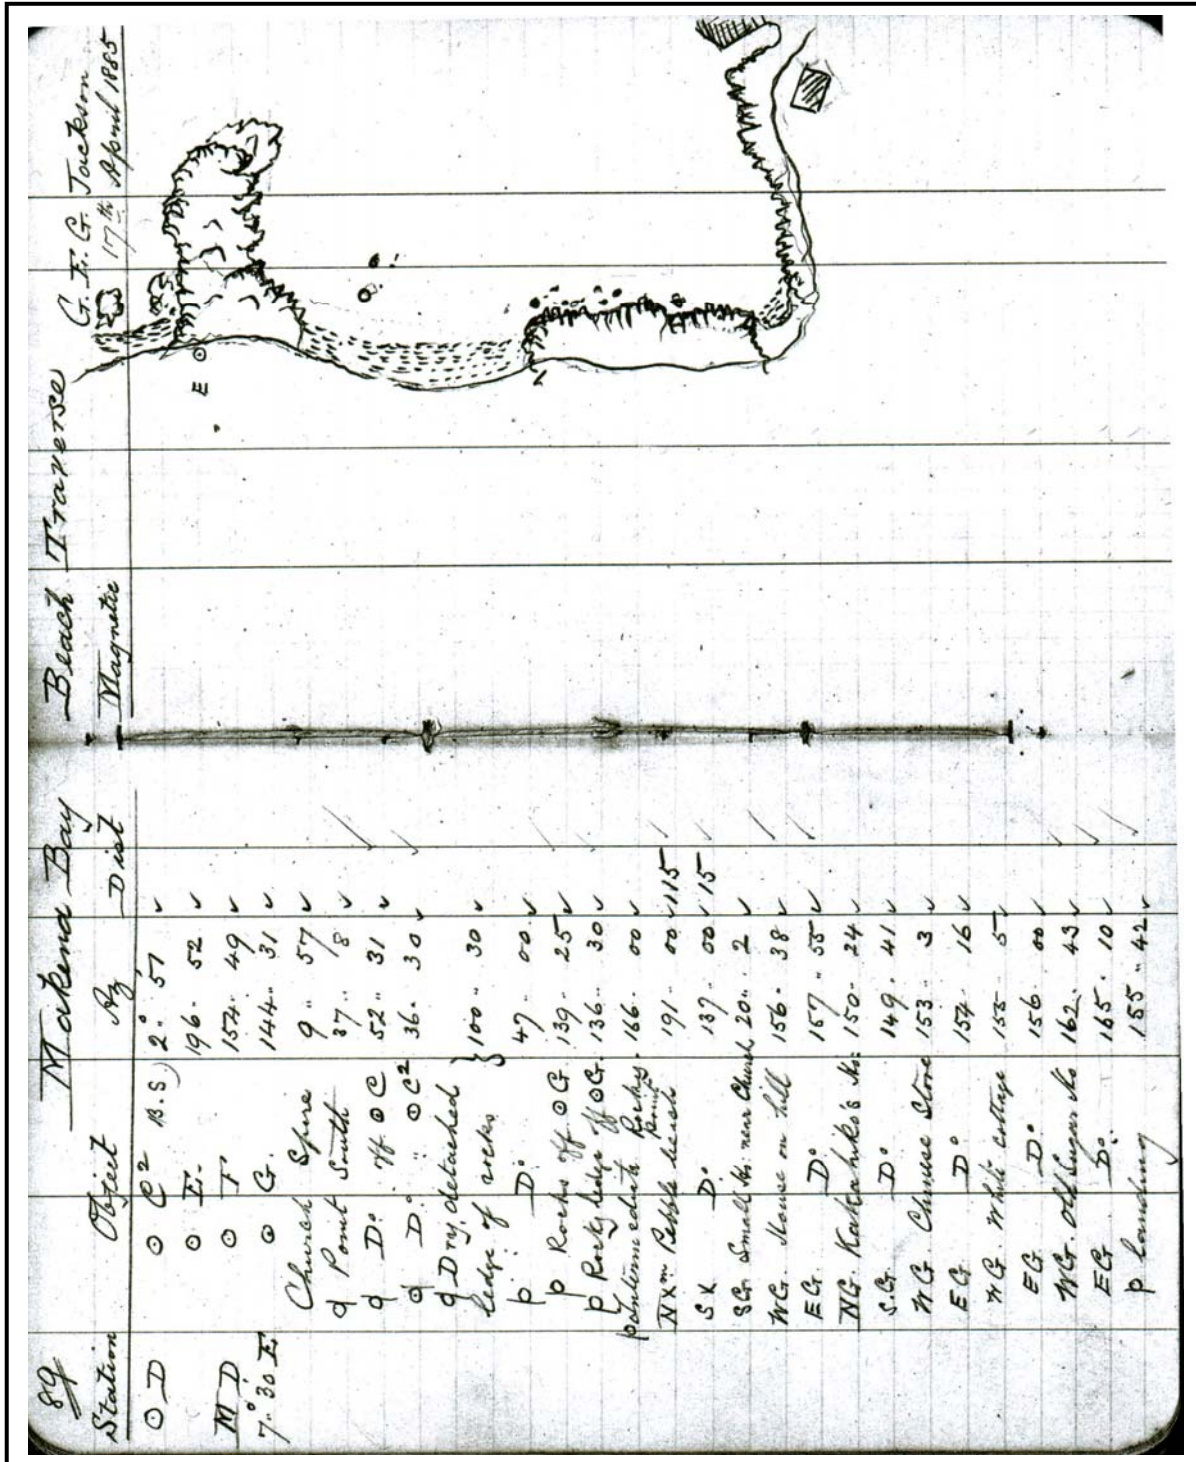 89 Makena Bay Beach Traverse G. E. G. Jackson
Station Object Az Dist Magnetic 17th April 1885
⊙ D ⊙ C² B.S) 2° 51'
⊙ E. 196" 52
M D ⊙ F 154" 49
7° 30 E. ⊙ G. 144" 31
Church Spire 9" 57
q Point South 37" 18
q Do off ⊙ C 52" 31
q Do " ⊙ C² 36" 30
q Dry, detached
ledge of rocks } 100" 30
p Do 47" 00
p Rocks off ⊙ G. 139" 25
p Rocky ledge off ⊙ G. 136" 30
p intermediate Rocky Point 166" 00
N Xm Pebble beach 191" 00 115
S X Do 137" 00 15
SG. Small Ho: near Church 20" 2
WG. House on hill 156" 38
EG. Do 157" 55
NG. Ho: 150" 24
S.G. Do 149" 41
WG. Chinese Store 153" 3
EG. Do 154" 16
WG. White cottage 155" 5
EG. Do 156" 00
WG. Old Sugar Ho 162" 43
EG Do 165" 10
p Landing 155" 42
E